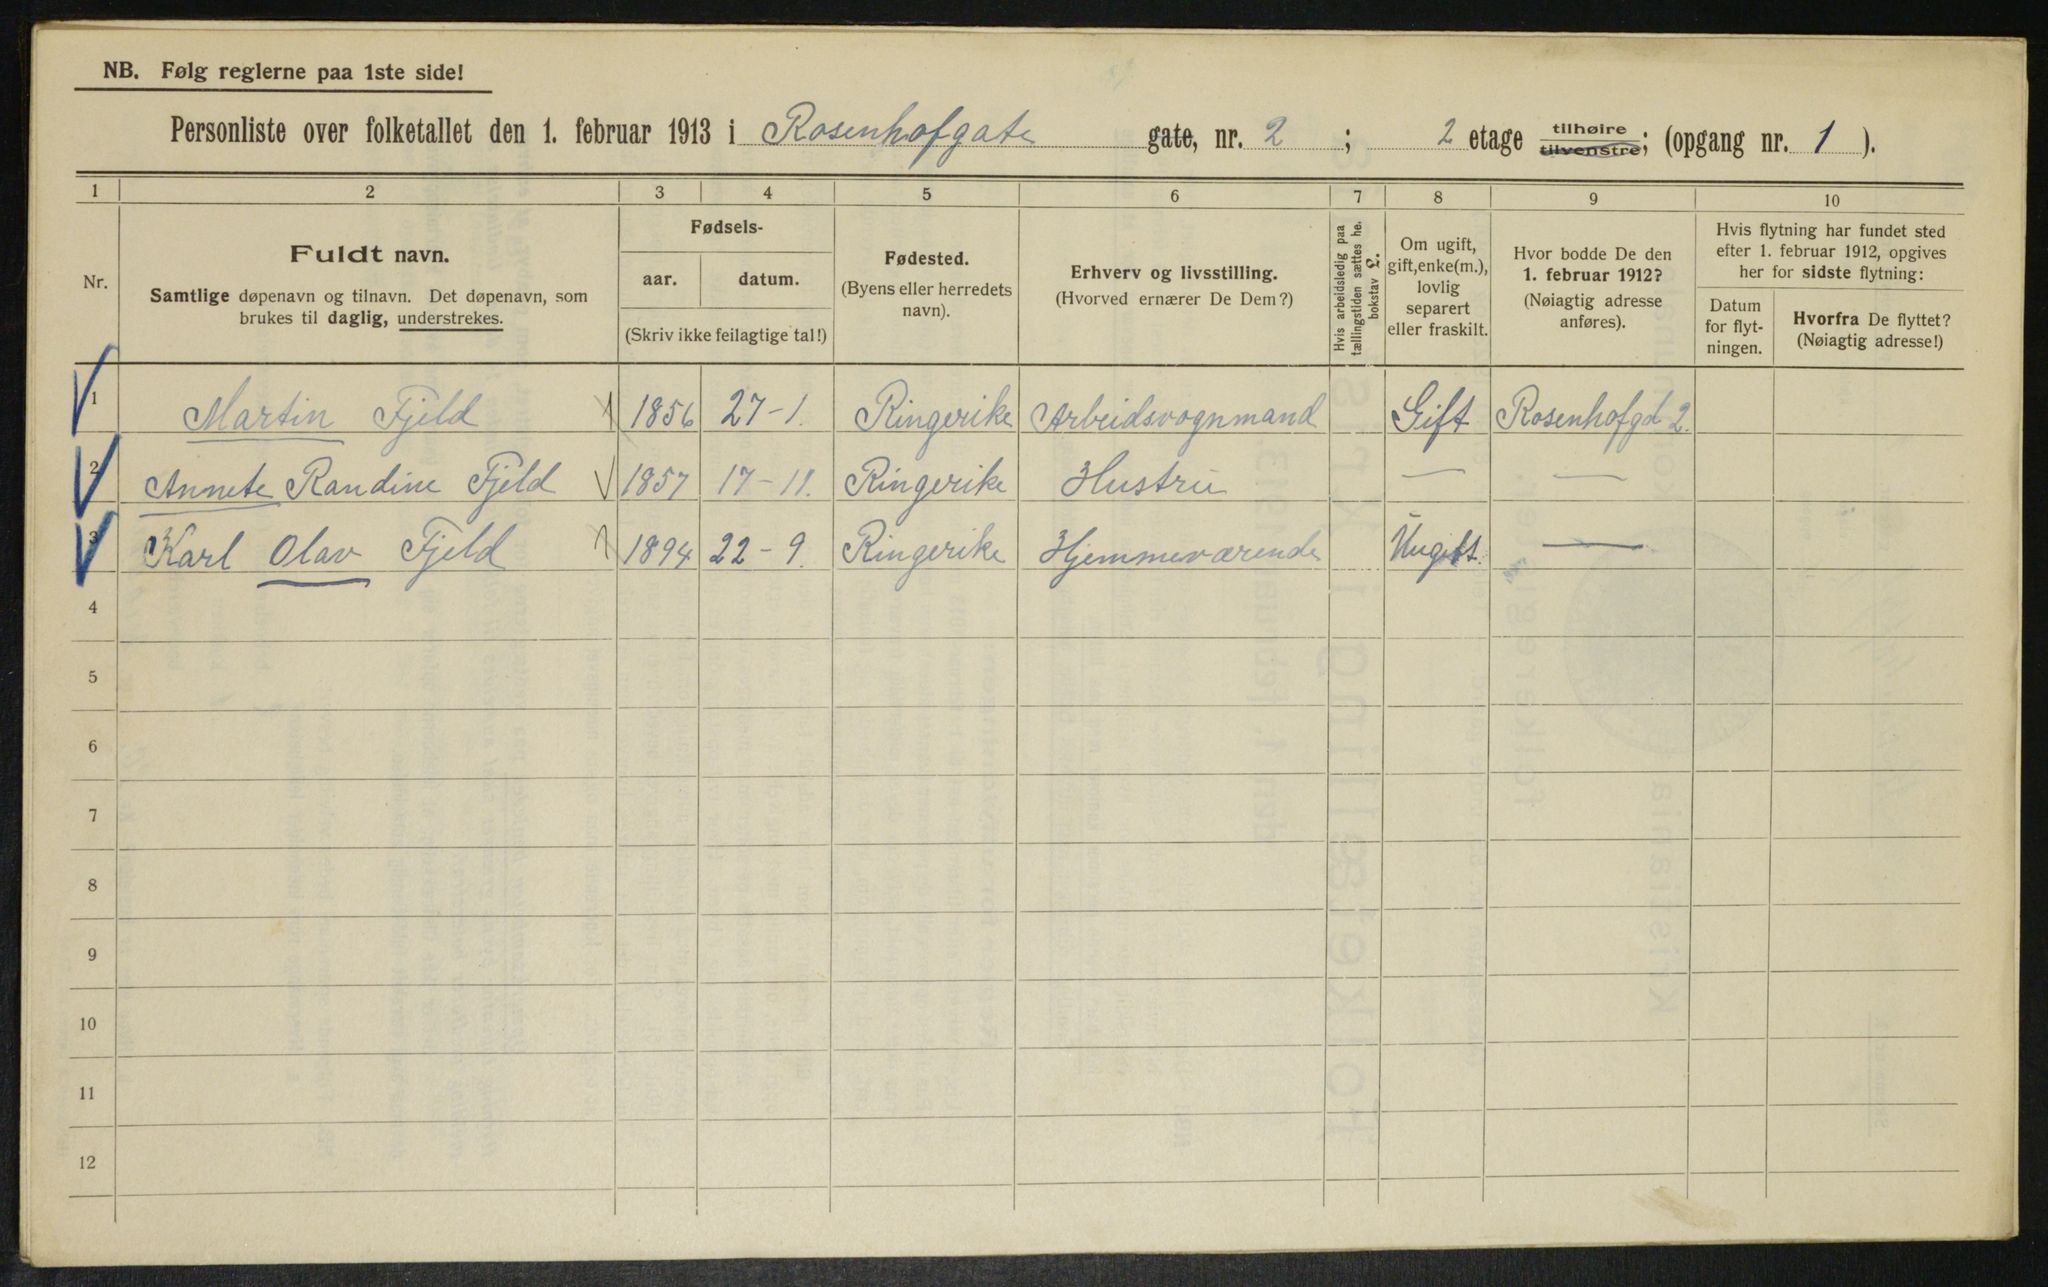 NB. Følg reglerne paa 1ste side!
Personliste over folketallet den 1. februar 1913 i Rosenhofgate gate, nr. 2 ; 2 etage tilhøire tilvenstre; (opgang nr. 1 ).
1 2 3 4 5 6 7 8 9 10
Nr.
Fuldt navn.
Samtlige døpenavn og tilnavn. Det døpenavn, som
brukes til daglig, understrekes.
Fødsels-
aar. datum.
(Skriv ikke feilagtige tal!)
Fødested.
(Byens eller herredets
navn).
Erhverv og livsstilling.
(Hvorved ernærer De Dem?)
Hvis arbeidsledig paa
tællingstiden sættes he.
bokstav L.
Om ugift,
gift, enke(m.),
lovlig
separert
eller fraskilt.
Hvor bodde De den
1. februar 1912?
(Nøiagtig adresse
anføres).
Hvis flytning har fundet sted
efter 1. februar 1912, opgives
her for sidste flytning:
Datum
for flyt-
ningen.
Hvorfra De flyttet?
(Nøiagtig adresse!)
1 Martin Fjeld 1856 27-1. Ringerike Arbeidsvognmand Gift Rosenhofgd 2.
2 Annete Randine Fjeld 1857 17-11. Ringerike Hustru — —
3 Karl Olav Fjeld 1894 22-9. Ringerike Hjemmeværende Ungift. —
4
5
6
7
8
9
10
11
12